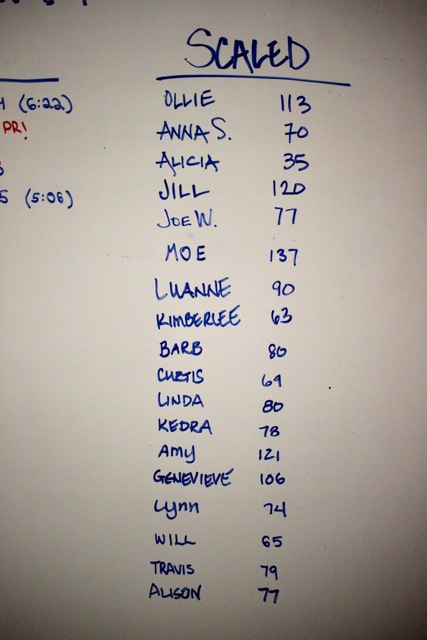 SCALED
(6:22)
PR!
5 (5:06)
OLLIE 113
ANNA S. 70
ALICIA 35
JILL 120
JOE W. 77
MOE 137
LUANNE 90
KIMBERLEE 63
BARB 80
CURTIS 69
LINDA 80
KEDRA 78
AMY 121
GENEVIEVE 106
Lynn 74
WILL 65
TRAVIS 79
ALISON 77